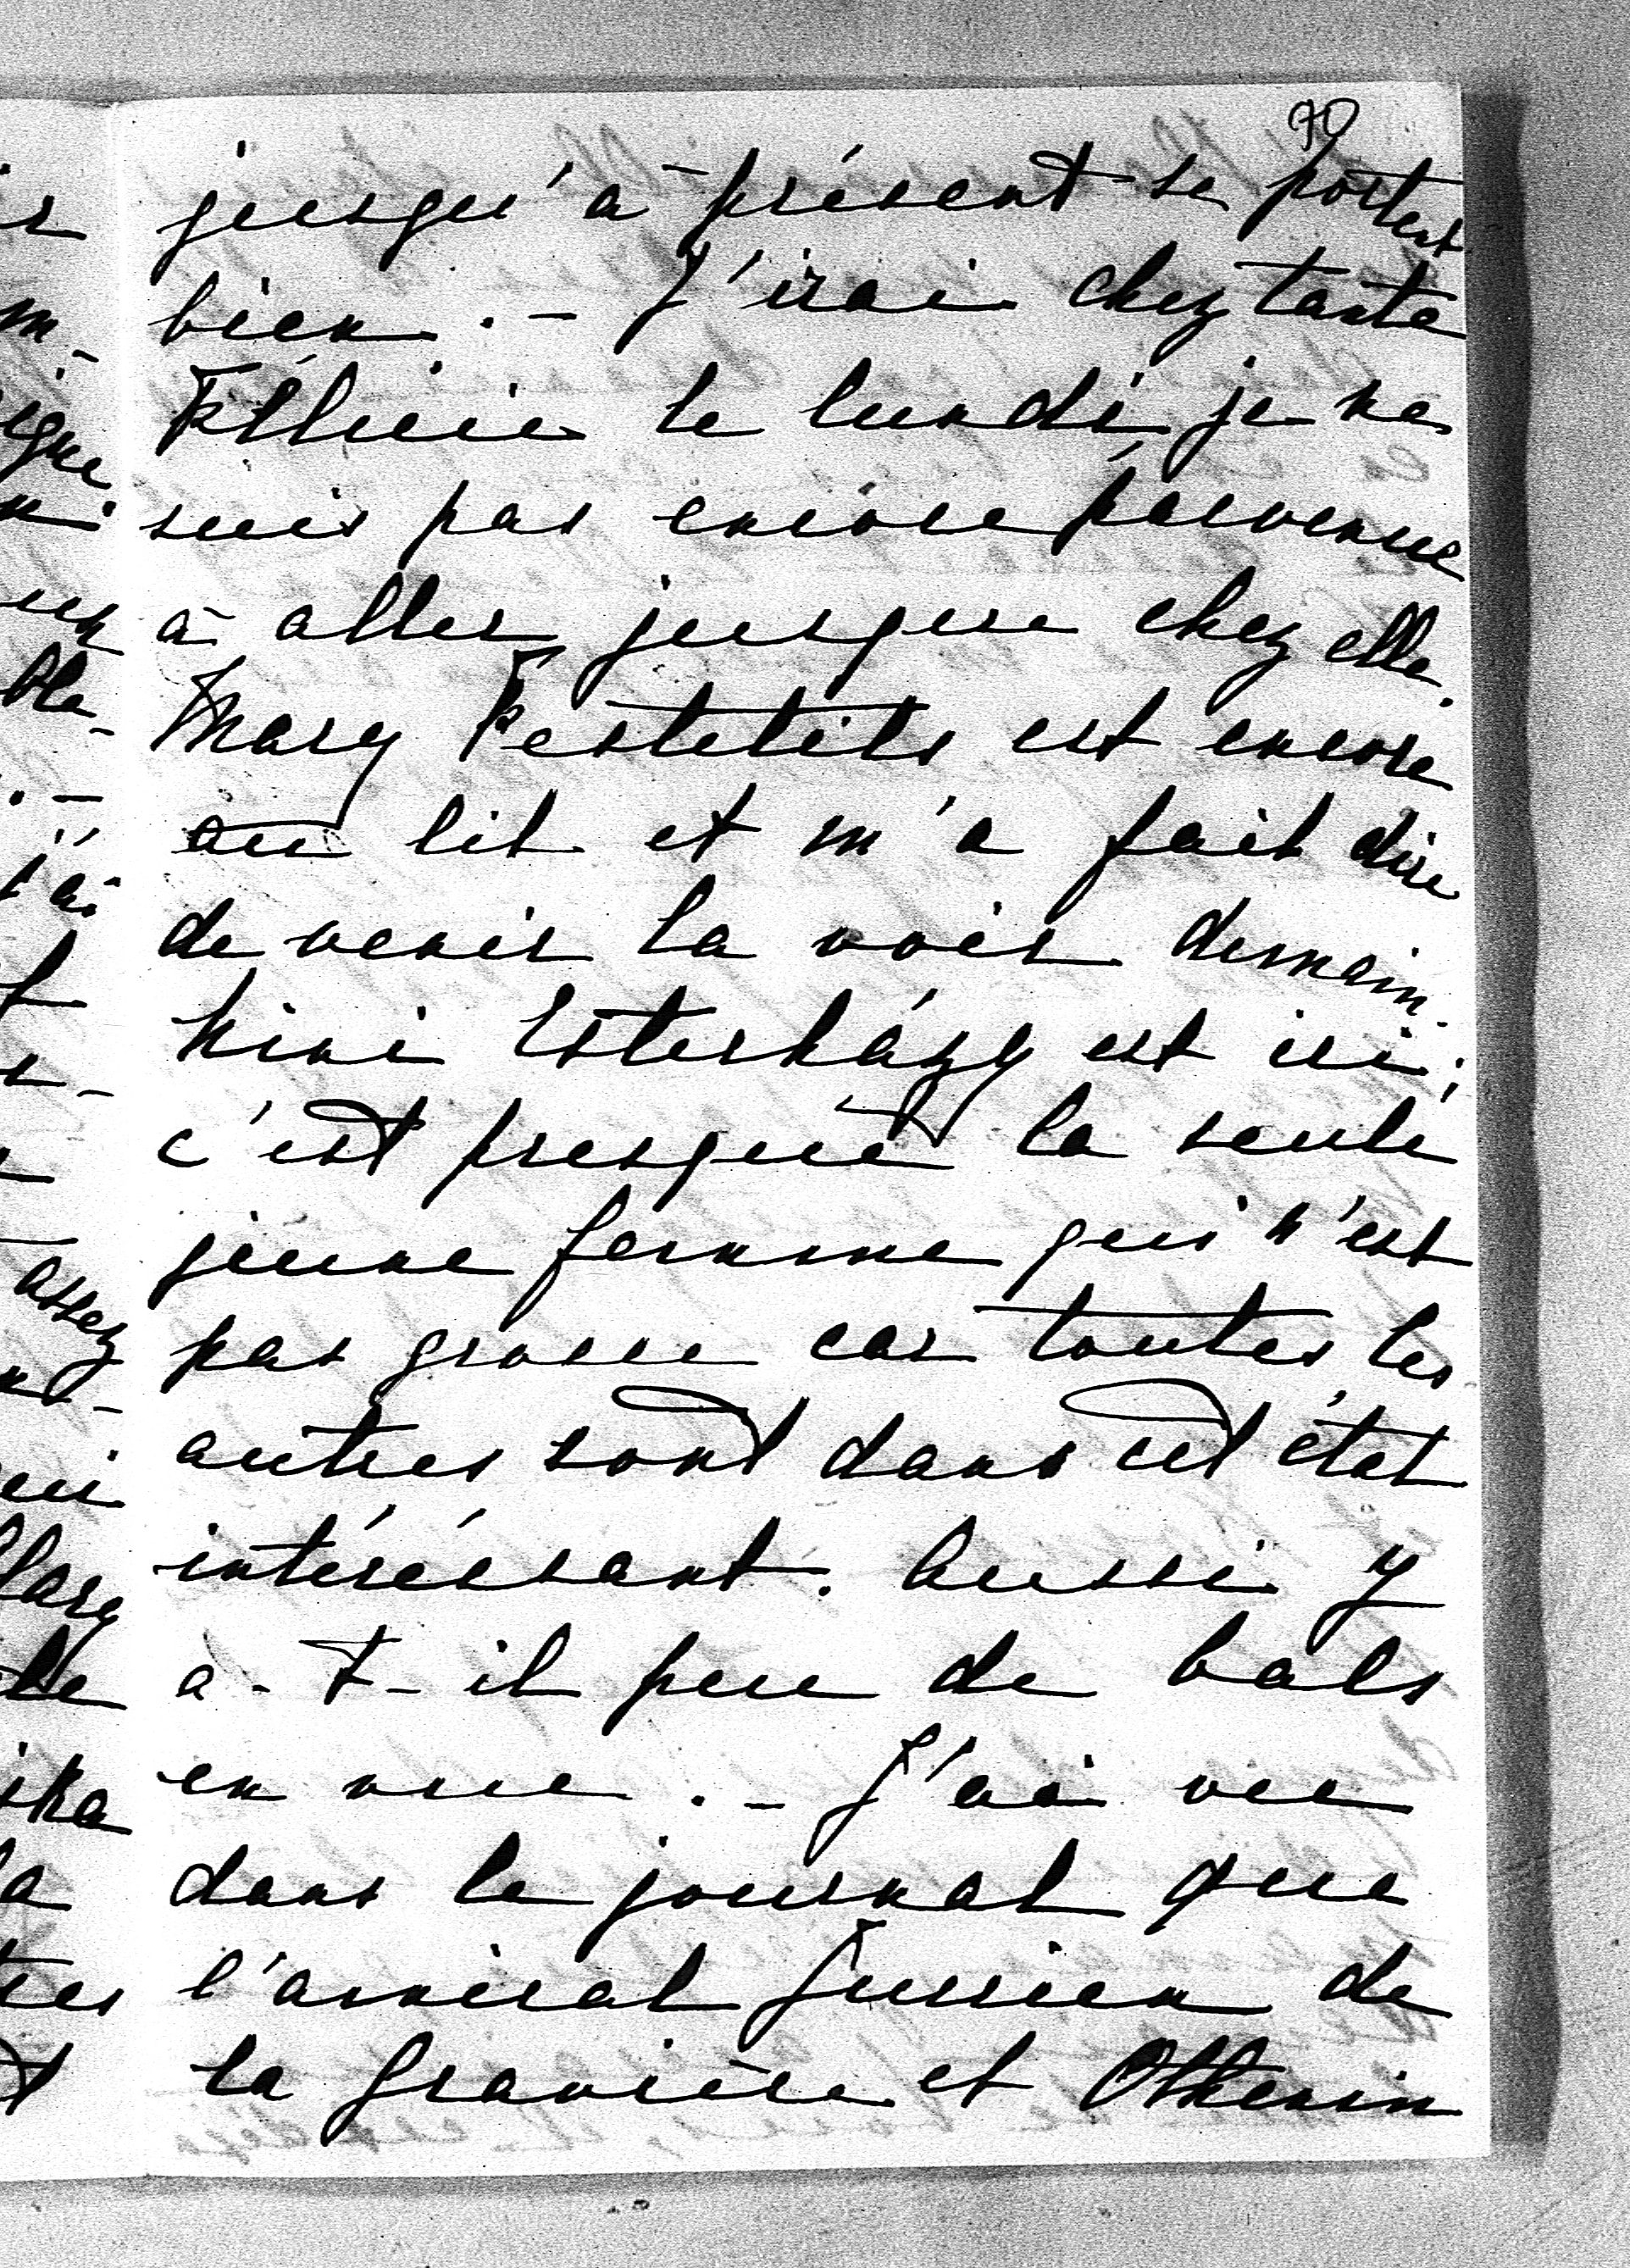 70
jusqu'à présent se portent
bien. - J'irai chez tante
Félicie le lundi je ne
suis pas encore parvenue
à aller jusque chez elle.
Mary Festetits est encore
au lit et m'a fait dire
de venir la voir demain.
Nini Esterházy est ici;
c'est presque la seule
jeune femme qui n'est
pas grosse car toutes les
autres sont dans cet état
intéréssant. Aussi y
a-t-il peu de bals
en vue. - J'ai vu
dans le journal que
l'amiral Jurien de
la Gravière et Othenin